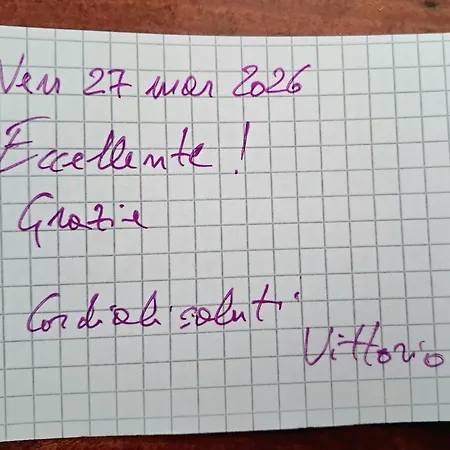 Ven 27 mar 2026
Eccellente!
Grazie
Cordiali saluti
Vittorio